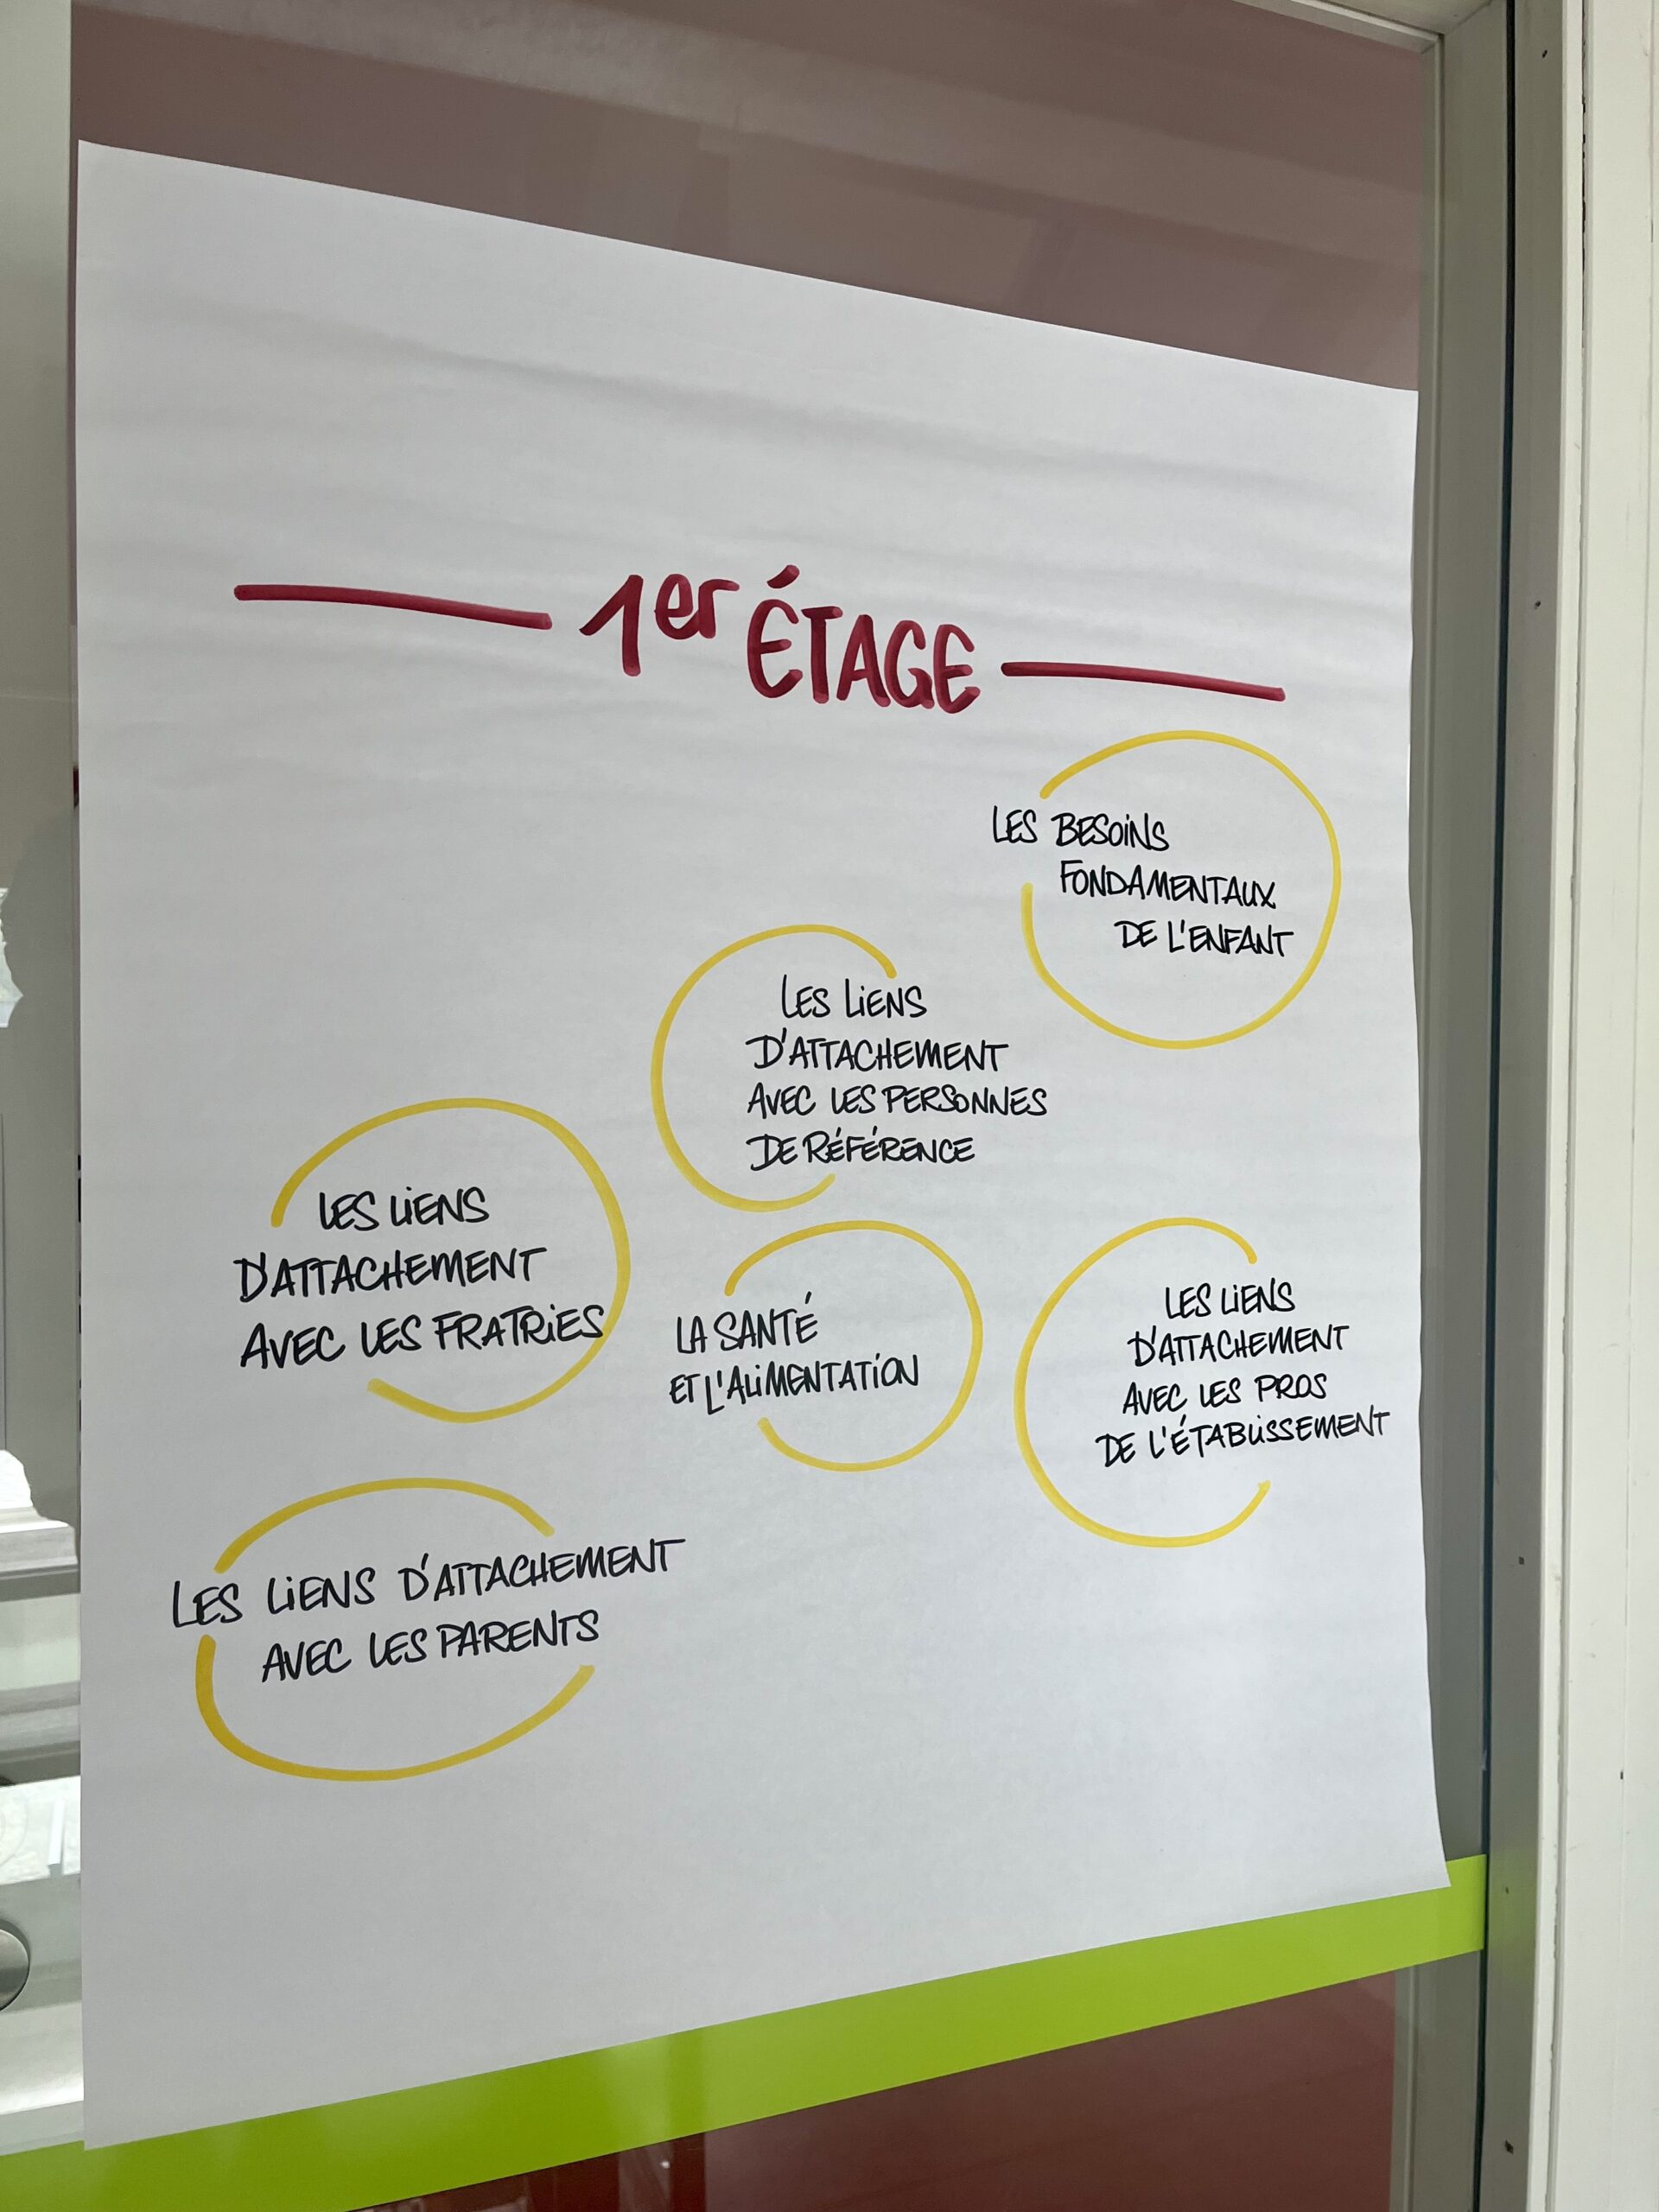 1er ÉTAGE
LES BESOINS
FONDAMENTAUX
DE L'ENFANT
LES LIENS
D'ATTACHEMENT
AVEC LES PERSONNES
DE RÉFÉRENCE
LES LIENS
D'ATTACHEMENT
AVEC LES FRATRIES
LA SANTÉ
ET L'ALIMENTATION
LES LIENS
D'ATTACHEMENT
AVEC LES PROS
DE L'ÉTABLISSEMENT
LES LIENS D'ATTACHEMENT
AVEC LES PARENTS